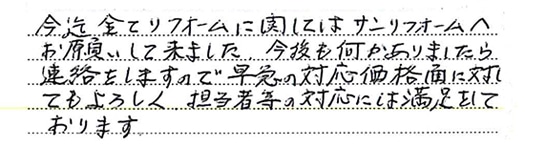 今迄 全てリフォームに関してはサンリフォームへ
お願いして来ました 今後も何かありましたら
連絡をしますので早急の対応価格面に対し
てもよろしく 担当者等の対応には満足をして
おります